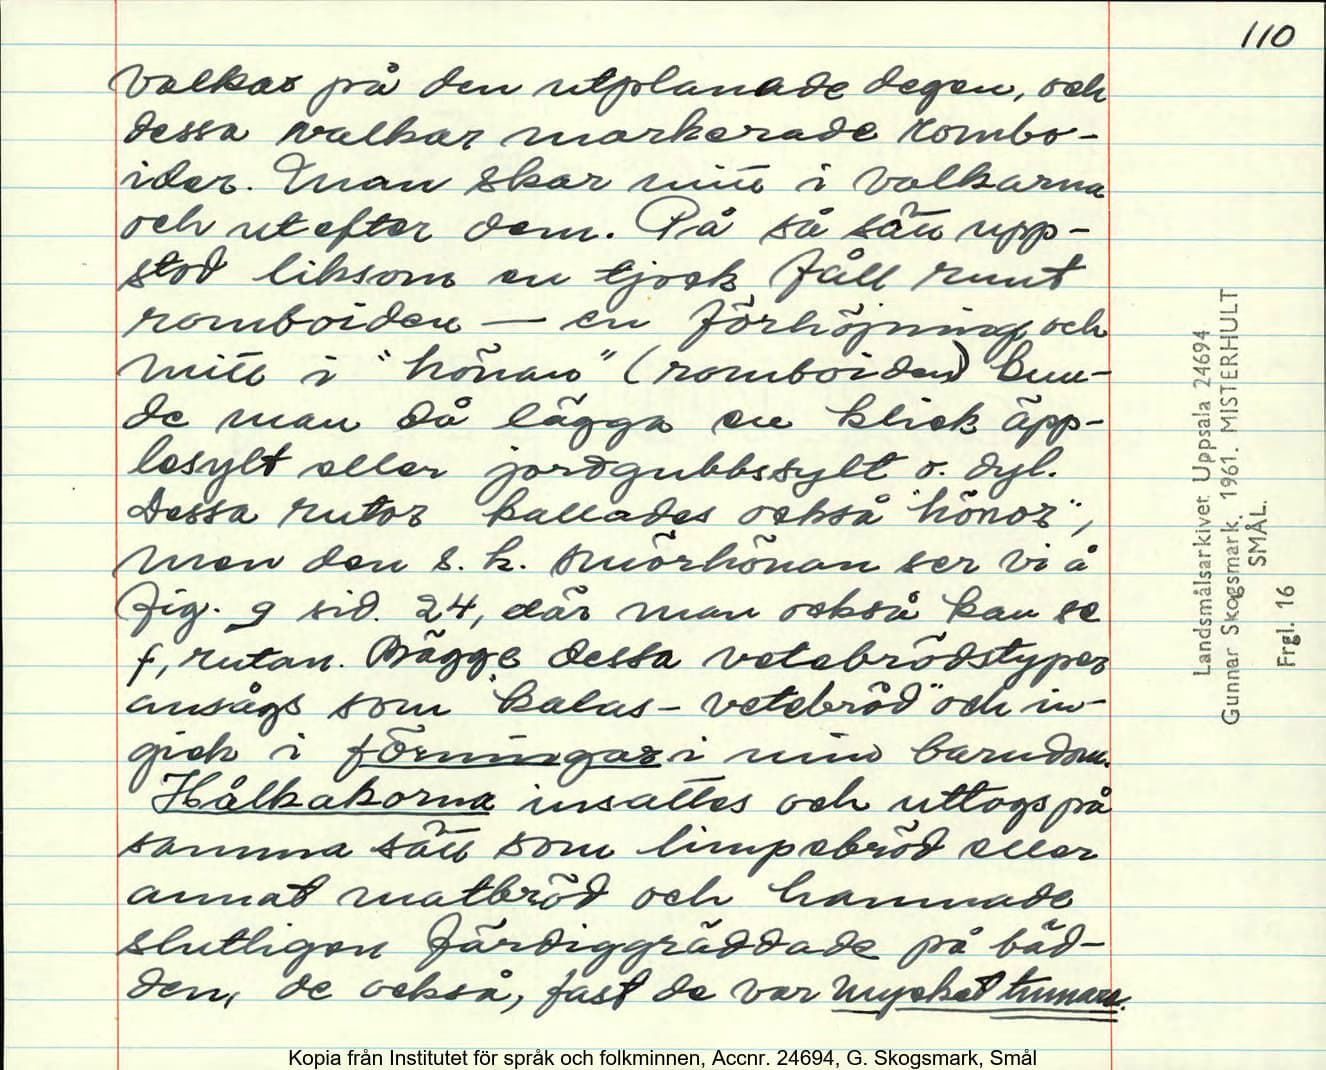 110
valkar på den utplanade degen, och
dessa valkar markerade rombo-
ider. Man skar mitt i valkarna
och utefter dem. På så sätt upp-
stod liksom en tjock fåll runt
romboiden — en förhöjning, och
mitt i "hönan" (romboiden) kun-
de man då lägga en klick äpp-
lesylt eller jordgubbssylt o. dyl.
Dessa rutor kallades också "hönor",
men den s. k. smörhönan ser vi å
fig. 9 sid. 24, där man också kan se
f, rutan. Bägge dessa vetebrödstyper
ansågs som "kalas-vetebröd" och in-
gick i förningar i min barndom.
Hålkakorna insattes och uttogs på
samma sätt som limpebröd eller
annat matbröd och hamnade
slutligen färdiggräddade på bäd-
den, de också, fast de var mycket tunnare.
Landsmålsarkivet Uppsala 24694
Gunnar Skogsmark. 1961. MISTERHULT
SMÅL.
Frgl. 16
Kopia från Institutet för språk och folkminnen, Accnr. 24694, G. Skogsmark, Smål